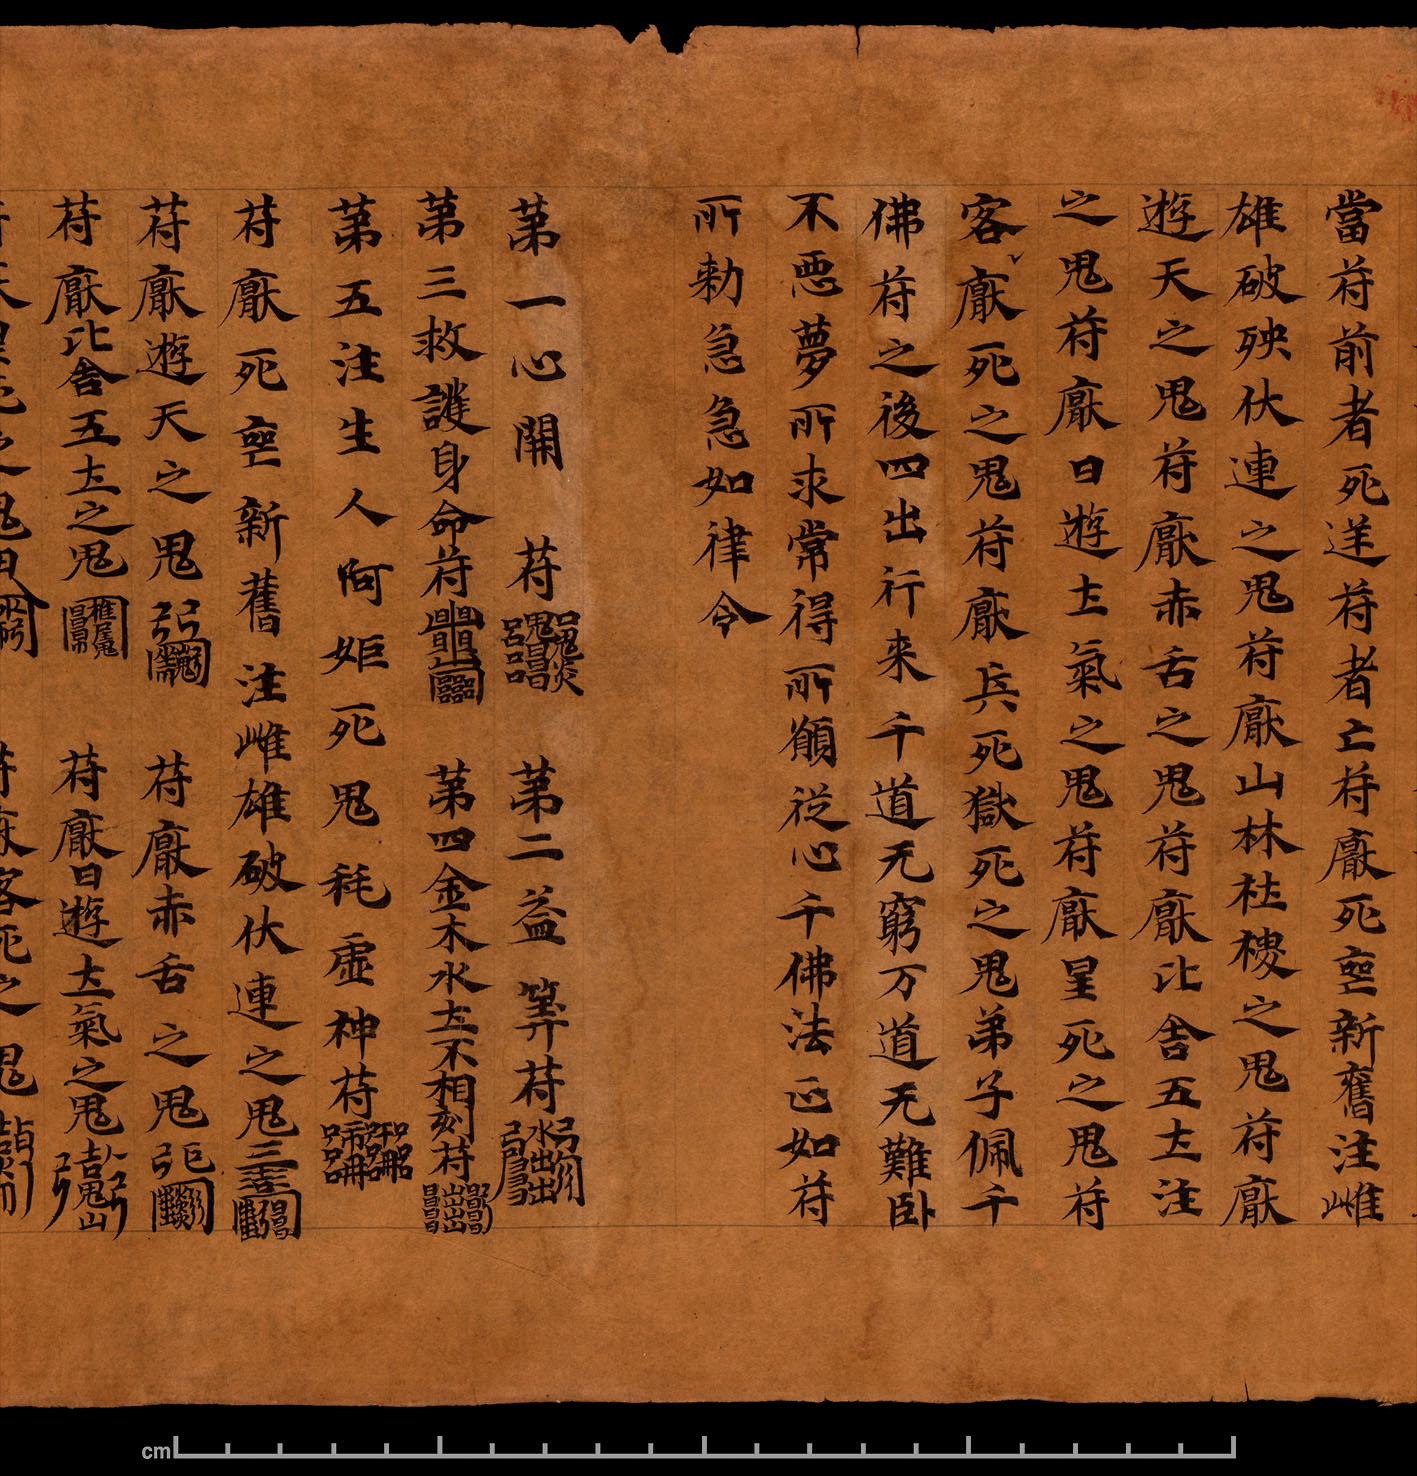 當符前者死迷符者亡符厭死𡨥新舊注雌
雄破殃伏連之鬼符厭山林社𣏌之鬼符厭
遊天之鬼符厭赤舌之鬼符厭比舍五土注
之鬼符厭日遊土氣之鬼符厭星死之鬼符
客厭死之鬼符厭兵死獄死之鬼弟子佩千
佛符之後四出行来千道无窮万道无難卧
不惡夢所求常得所願從心千佛法正如符
所勑急急如律令
第一心開符 第二益筭符
第三救護身命符 第四金木水土不相剋符
第五注生人呵姖死鬼耗虛神符
符厭死𡨥新舊注雌雄破伏連之鬼
符厭遊天之鬼 符厭赤舌之鬼
符厭比舍五土之鬼 符厭日遊土氣之鬼
符厭星死之鬼 符厭客死之鬼